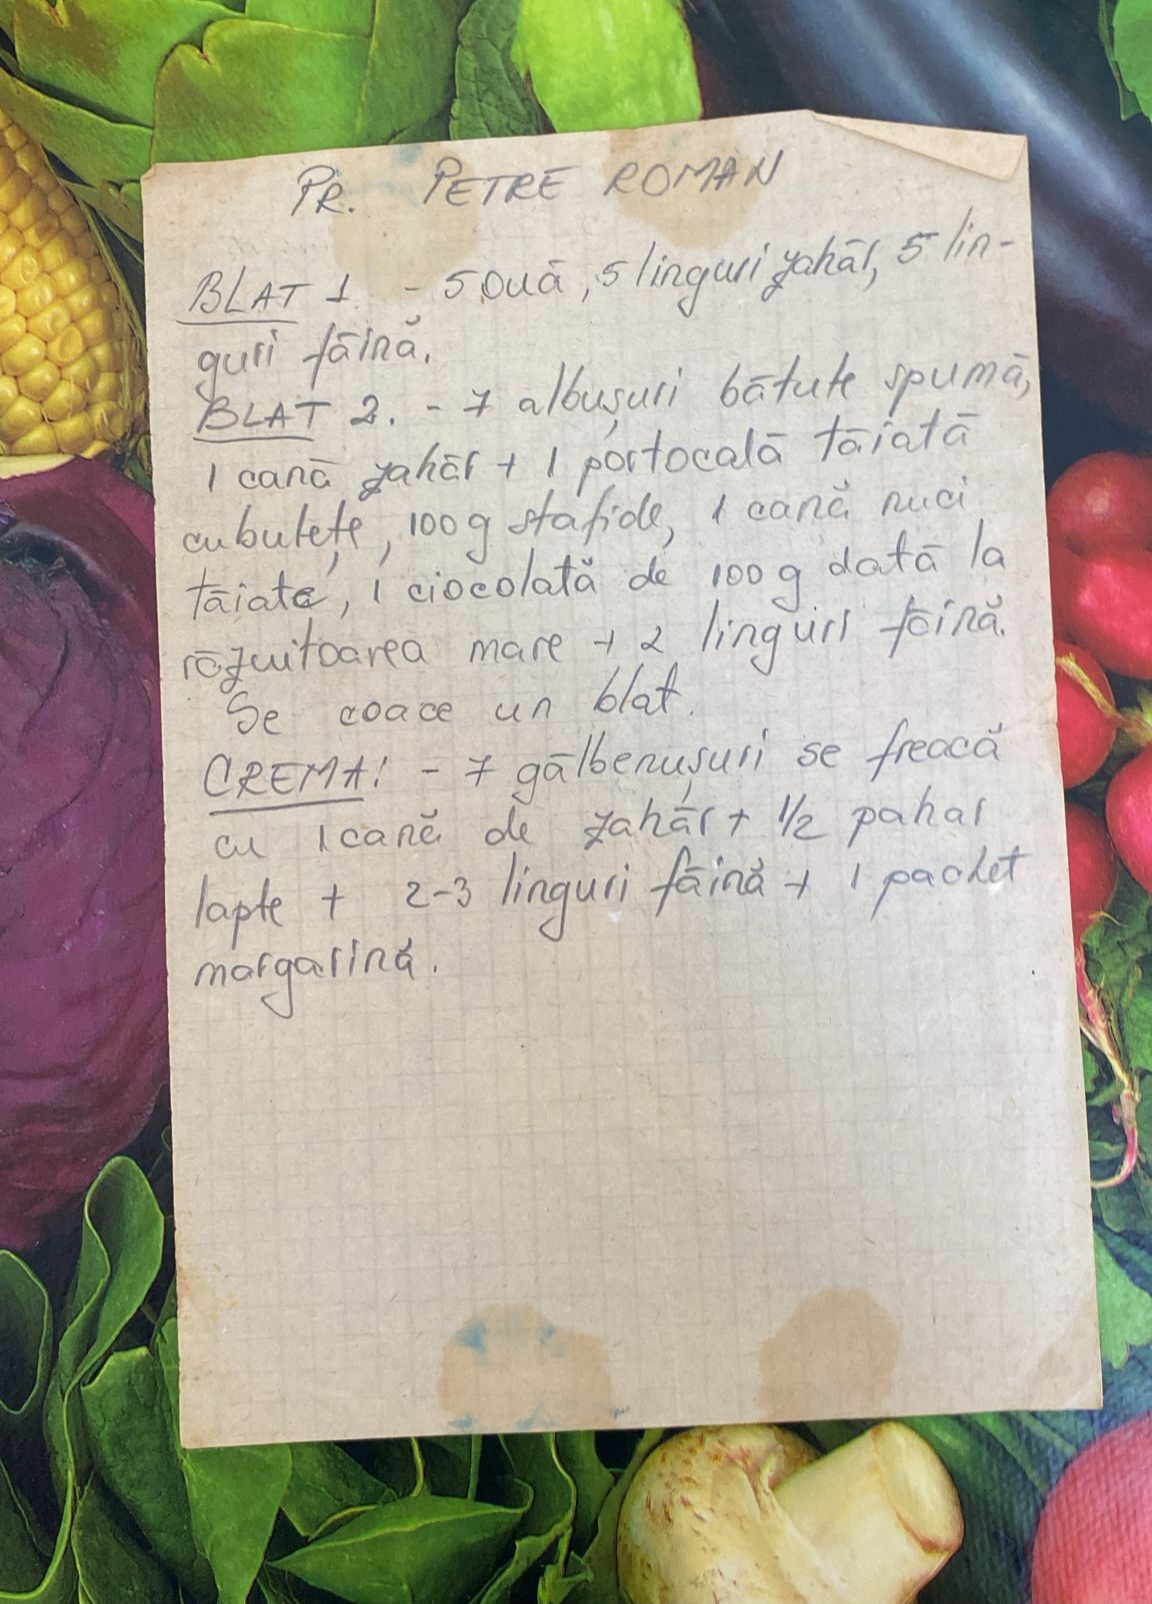 PR. PETRE ROMAN
BLAT 1. - 5 ouă, 5 linguri zahăr, 5 lin-
guri făină.
BLAT 2. - 7 albușuri bătute spumă,
1 cană zahăr + 1 portocală tăiată
cubulețe, 100 g stafide, 1 cană nuci
tăiate, 1 ciocolată de 100 g dată la
răzuitoarea mare + 2 linguri făină.
Se coace un blat.
CREMA: - 7 gălbenușuri se freacă
cu 1 cană de zahăr + 1/2 pahar
lapte + 2-3 linguri făină + 1 pachet
margarină.